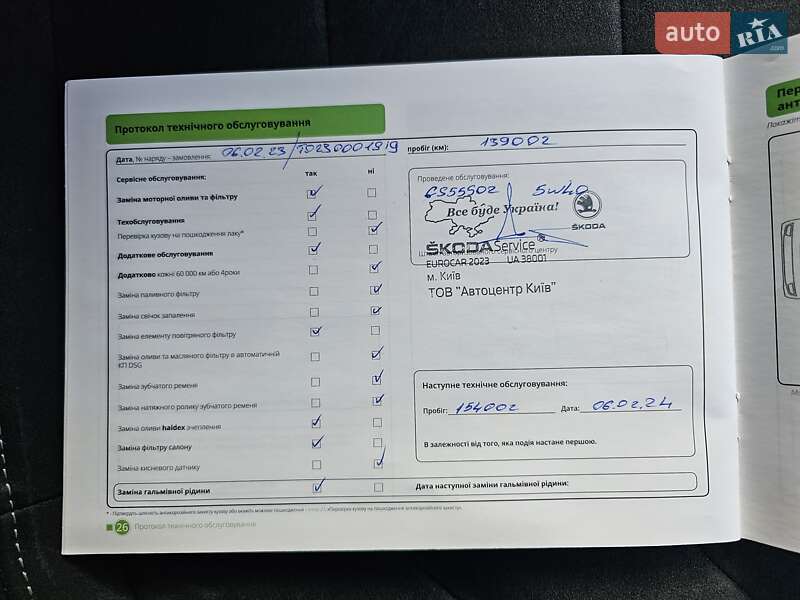 auto RIA .com
Протокол технічного обслуговування
Дата, № наряду – замовлення: 06.02.23/
пробіг (км): 139002
Сервісне обслуговування:
так
ні
Заміна моторної оливи та фільтру
Техобслуговування
Перевірка кузову на пошкодження лаку*
Додаткове обслуговування
Додатково кожні 60 000 км або 4роки
Заміна паливного фільтру
Заміна свічок запалення
Заміна елементу повітряного фільтру
Заміна оливи та масляного фільтру в автоматичній
КП DSG
Заміна зубчатого ременя
Заміна натяжного ролику зубчатого ременя
Заміна оливи haldex зчеплення
Заміна фільтру салону
Заміна кисневого датчику
Заміна гальмівної рідини
Проведене обслуговування:
Все буде Україна!
ŠKODA
ŠKODA Service
EUROCAR 2023 UA 38001
м. Київ
ТОВ "Автоцентр Київ"
Наступне технічне обслуговування:
Пробіг: 154002 Дата: 06.02.24
В залежності від того, яка подія настане першою.
Дата наступної заміни гальмівної рідини:
26 Протокол технічного обслуговування